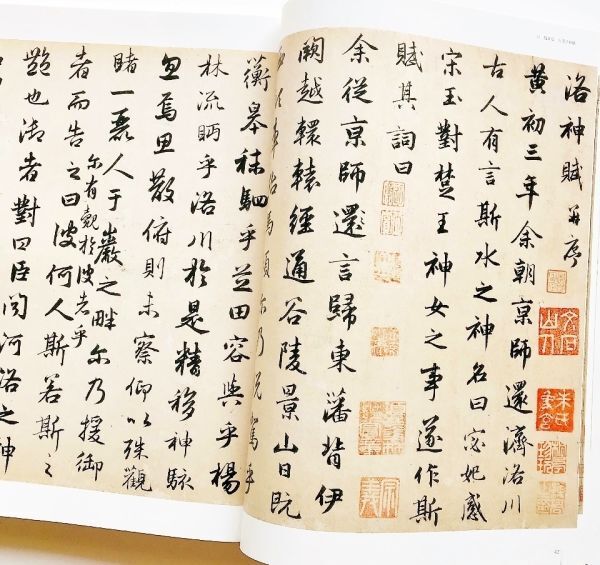 洛神賦并序
黃初三年余朝京師還濟洛川
古人有言斯水之神名曰宓妃感
宋玉對楚王神女之事遂作斯
賦其詞曰
余從京師還言歸東藩背伊
闕越轘轅經通谷陵景山日既
殆馬煩尔乃稅駕乎
蘅皋秣駟乎芝田容與乎楊
林流眄乎洛川於是精移神駭
忽焉思散俯則未察仰以殊觀
睹一麗人于巖之畔尔乃援御
者而告之曰尔有覿於彼者乎彼何人斯若斯之
豔也御者對曰臣聞河洛之神
42